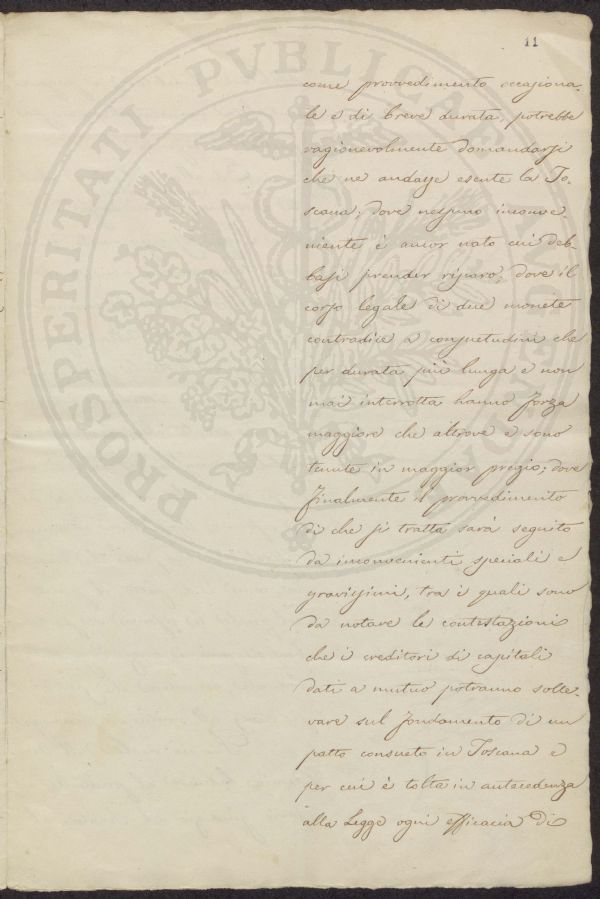 11
PROSPERITATI PVBLICAE
come provvedimento occasiona-
le e di breve durata, potrebbe
ragionevolmente domandarsi
che ne andasse esente la To-
scana, dove nessuno inconve-
niente è ancor nato cui deb-
basi prender riparo, dove il
corso legale di due monete
contradice a consuetudini che
per durata più lunga e non
mai interrotta hanno forza
maggiore che altrove e sono
tenute in maggior pregio; dove
finalmente il provvedimento
di che si tratta sarà seguito
da inconvenienti speciali e
gravissimi, tra i quali sono
da notare le contestazioni
che i creditori di capitali
dati a mutuo potranno solle-
vare sul fondamento di un
patto consueto in Toscana e
per cui è tolta in antecedenza
alla Legge ogni efficacia di